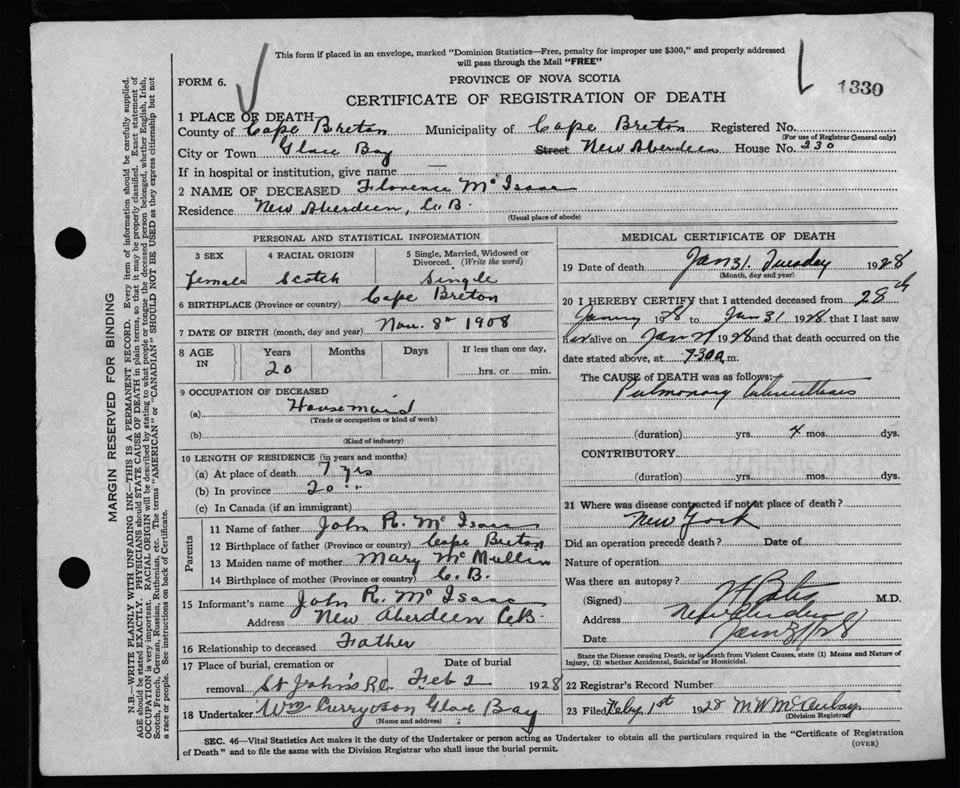 This form if placed in an envelope, marked "Dominion Statistics—Free, penalty for improper use $300," and properly addressed
will pass through the Mail "FREE"
FORM 6.
PROVINCE OF NOVA SCOTIA
1330
CERTIFICATE OF REGISTRATION OF DEATH
1 PLACE OF DEATH
County of Cape Breton Municipality of Cape Breton Registered No.
(For use of Registrar General only)
City or Town Glace Bay Street New Aberdeen House No. 230
If in hospital or institution, give name —
2 NAME OF DECEASED Florence McIsaac
Residence New Aberdeen, C.B.
(Usual place of abode)
PERSONAL AND STATISTICAL INFORMATION
3 SEX 4 RACIAL ORIGIN 5 Single, Married, Widowed or
Divorced. (Write the word)
female Scotch Single
6 BIRTHPLACE (Province or country) Cape Breton
7 DATE OF BIRTH (month, day and year) Nov. 8th 1908
8 AGE IN Years Months Days If less than one day,
20 hrs. or min.
9 OCCUPATION OF DECEASED
(a) Housemaid
(Trade or occupation or kind of work)
(b)
(Kind of industry)
10 LENGTH OF RESIDENCE (in years and months)
(a) At place of death 7 yrs
(b) In province 20 "
(c) In Canada (if an immigrant)
Parents
11 Name of father John R. McIsaac
12 Birthplace of father (Province or country) Cape Breton
13 Maiden name of mother Mary McMullin
14 Birthplace of mother (Province or country) C.B.
15 Informant's name John R. McIsaac
Address New Aberdeen C.B.
16 Relationship to deceased Father
17 Place of burial, cremation or Date of burial
removal St John's R.C. Feb 2 1928
18 Undertaker Wm Curry & Son Glace Bay
(Name and address)
MEDICAL CERTIFICATE OF DEATH
19 Date of death Jan 31. Tuesday 1928
(Month, day and year)
20 I HEREBY CERTIFY that I attended deceased from 28th
1928 to Jan 31 1928 that I last saw
her alive on Jan 1928 and that death occurred on the
date stated above, at 7-30 a.m.
The CAUSE of DEATH was as follows:
Pulmonary Tuberculosis
(duration) yrs. 4 mos. dys.
CONTRIBUTORY
(duration) yrs. mos. dys.
21 Where was disease contracted if not at place of death?
New York
Did an operation precede death? Date of
Nature of operation
Was there an autopay?
(Signed) M.D.
Address New Aberdeen
Date Jan 31/28
State the Disease causing Death, or in death from Violent Causes, state (1) Means and Nature of
Injury, (2) whether Accidental, Suicidal or Homicidal.
22 Registrar's Record Number
23 Filed Feby 1st 1928
(Division Registrar)
SEC. 46—Vital Statistics Act makes it the duty of the Undertaker or person acting as Undertaker to obtain all the particulars required in the "Certificate of Registration
of Death" and to file the same with the Division Registrar who shall issue the burial permit.
(OVER)
MARGIN RESERVED FOR BINDING
N.B.—WRITE PLAINLY WITH UNFADING INK—THIS IS A PERMANENT RECORD. Every item of information should be carefully supplied.
AGE should be stated EXACTLY. PHYSICIANS should STATE CAUSE OF DEATH in plain terms, so that it may be properly classified. Exact statement of
OCCUPATION is very important. RACIAL ORIGIN will be described by stating to what people or tongue the deceased person belonged, whether English, Irish,
Scotch, French, German, Russian, Ruthenian, etc. The terms "AMERICAN" or "CANADIAN" SHOULD NOT BE USED as they express citizenship but not
a race or people. See instructions on back of Certificate.